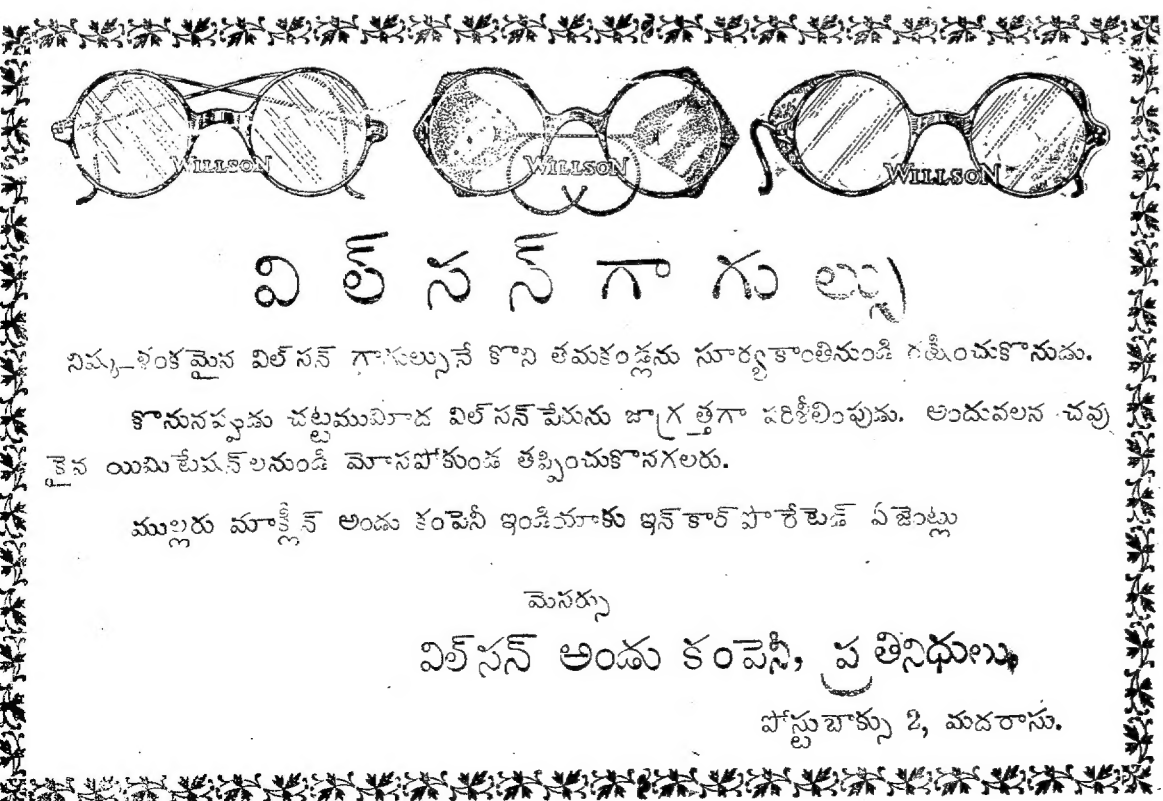 WILLSON WILLSON WILLSON
విల్సన్ గాగుల్సు
నిష్కళంకమైన విల్ సన్ గాగుల్సునే కొని తమకండ్లను సూర్యకాంతినుండి రక్షించుకొనుడు.
కొనునప్పుడు చట్టముమీద విల్ సన్ పేరును జాగ్రత్తగా పరిశీలింపుడు. అందువలన చవు
కైన యిమిటేషన్ లనుండి మోసపోకుండ తప్పించుకొనగలరు.
ముల్లరు మాక్లీన్ అండు కంపెనీ ఇండియాకు ఇన్ కార్ పొరేటెడ్ ఏజెంట్లు
మెసర్సు
విల్ సన్ అండు కంపెనీ, ప్రతినిధులు,
పోస్టుబాక్సు 2, మదరాసు.